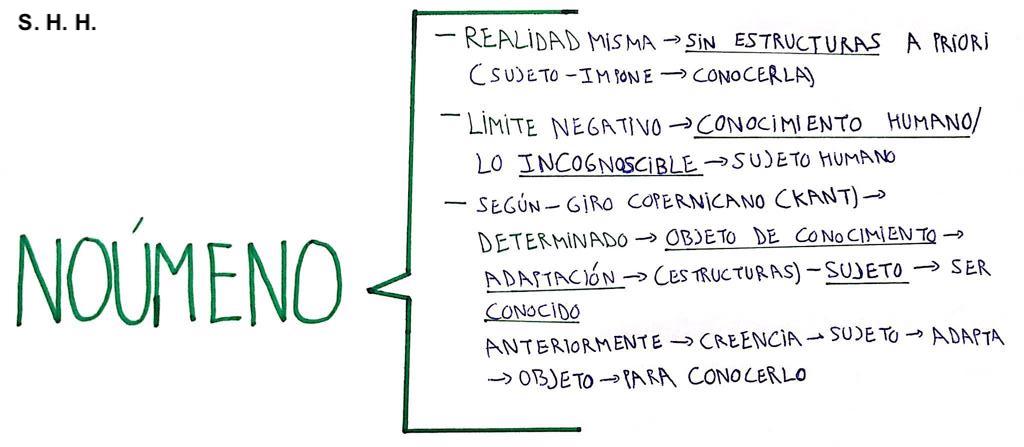 S. H. H.
NOÚMENO
- REALIDAD MISMA → SIN ESTRUCTURAS A PRIORI
(SUJETO - IMPONE → CONOCERLA)
- LÍMITE NEGATIVO → CONOCIMIENTO HUMANO/
LO INCOGNOSCIBLE → SUJETO HUMANO
- SEGÚN - GIRO COPERNICANO (KANT) →
DETERMINADO → OBJETO DE CONOCIMIENTO →
ADAPTACIÓN → (ESTRUCTURAS) - SUJETO → SER
CONOCIDO
ANTERIORMENTE → CREENCIA → SUJETO → ADAPTA
→ OBJETO → PARA CONOCERLO